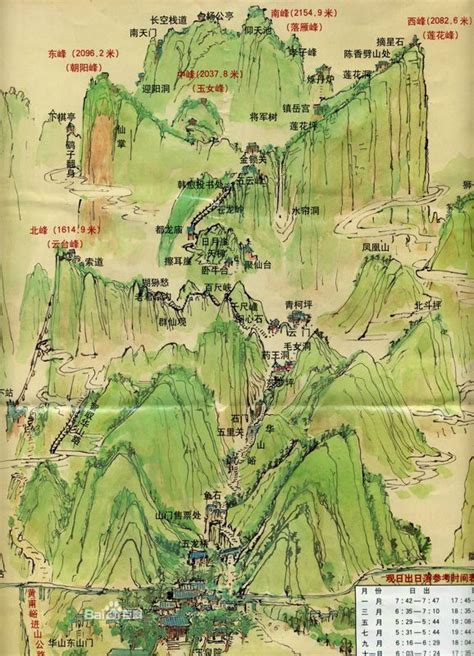 南峰(2154.9米)
(落雁峰)
杨公亭
长空栈道
南天门
仰天池
西峰(2082.6米)
(莲花峰)
摘星石
陈香劈山处
莲花洞
炼丹炉
东峰(2096.2米)
(朝阳峰)
中峰(2037.8米)
(玉女峰)
迎阳洞
镇岳宫
莲花坪
将军树
下棋亭
鹞子翻身
仙掌
金锁关
五云峰
韩愈投书处
苍龙岭
水帘洞
北峰(1614.9米)
(云台峰)
都龙庙
日月崖
天梯
擦耳崖
卧牛台
聚仙台
凤凰山
索道
猢狲愁
老君犁沟
百尺峡
千尺幢
回心石
群仙观
青柯坪
北斗坪
云门
毛女洞
药王洞
莎萝坪
下站
石门
五里关
华山峪
鱼石
山门售票处
五龙桥
玉泉院
黄甫峪进山公路
华山东山门
Bai 百科
观日出日落参考时间表
月份 日出
一月 7:42—7:47 17:45
三月 6:35—7:10 18:30
五月 5:35—5:54 19:08
七月
九月 6:04—6:28
十一月